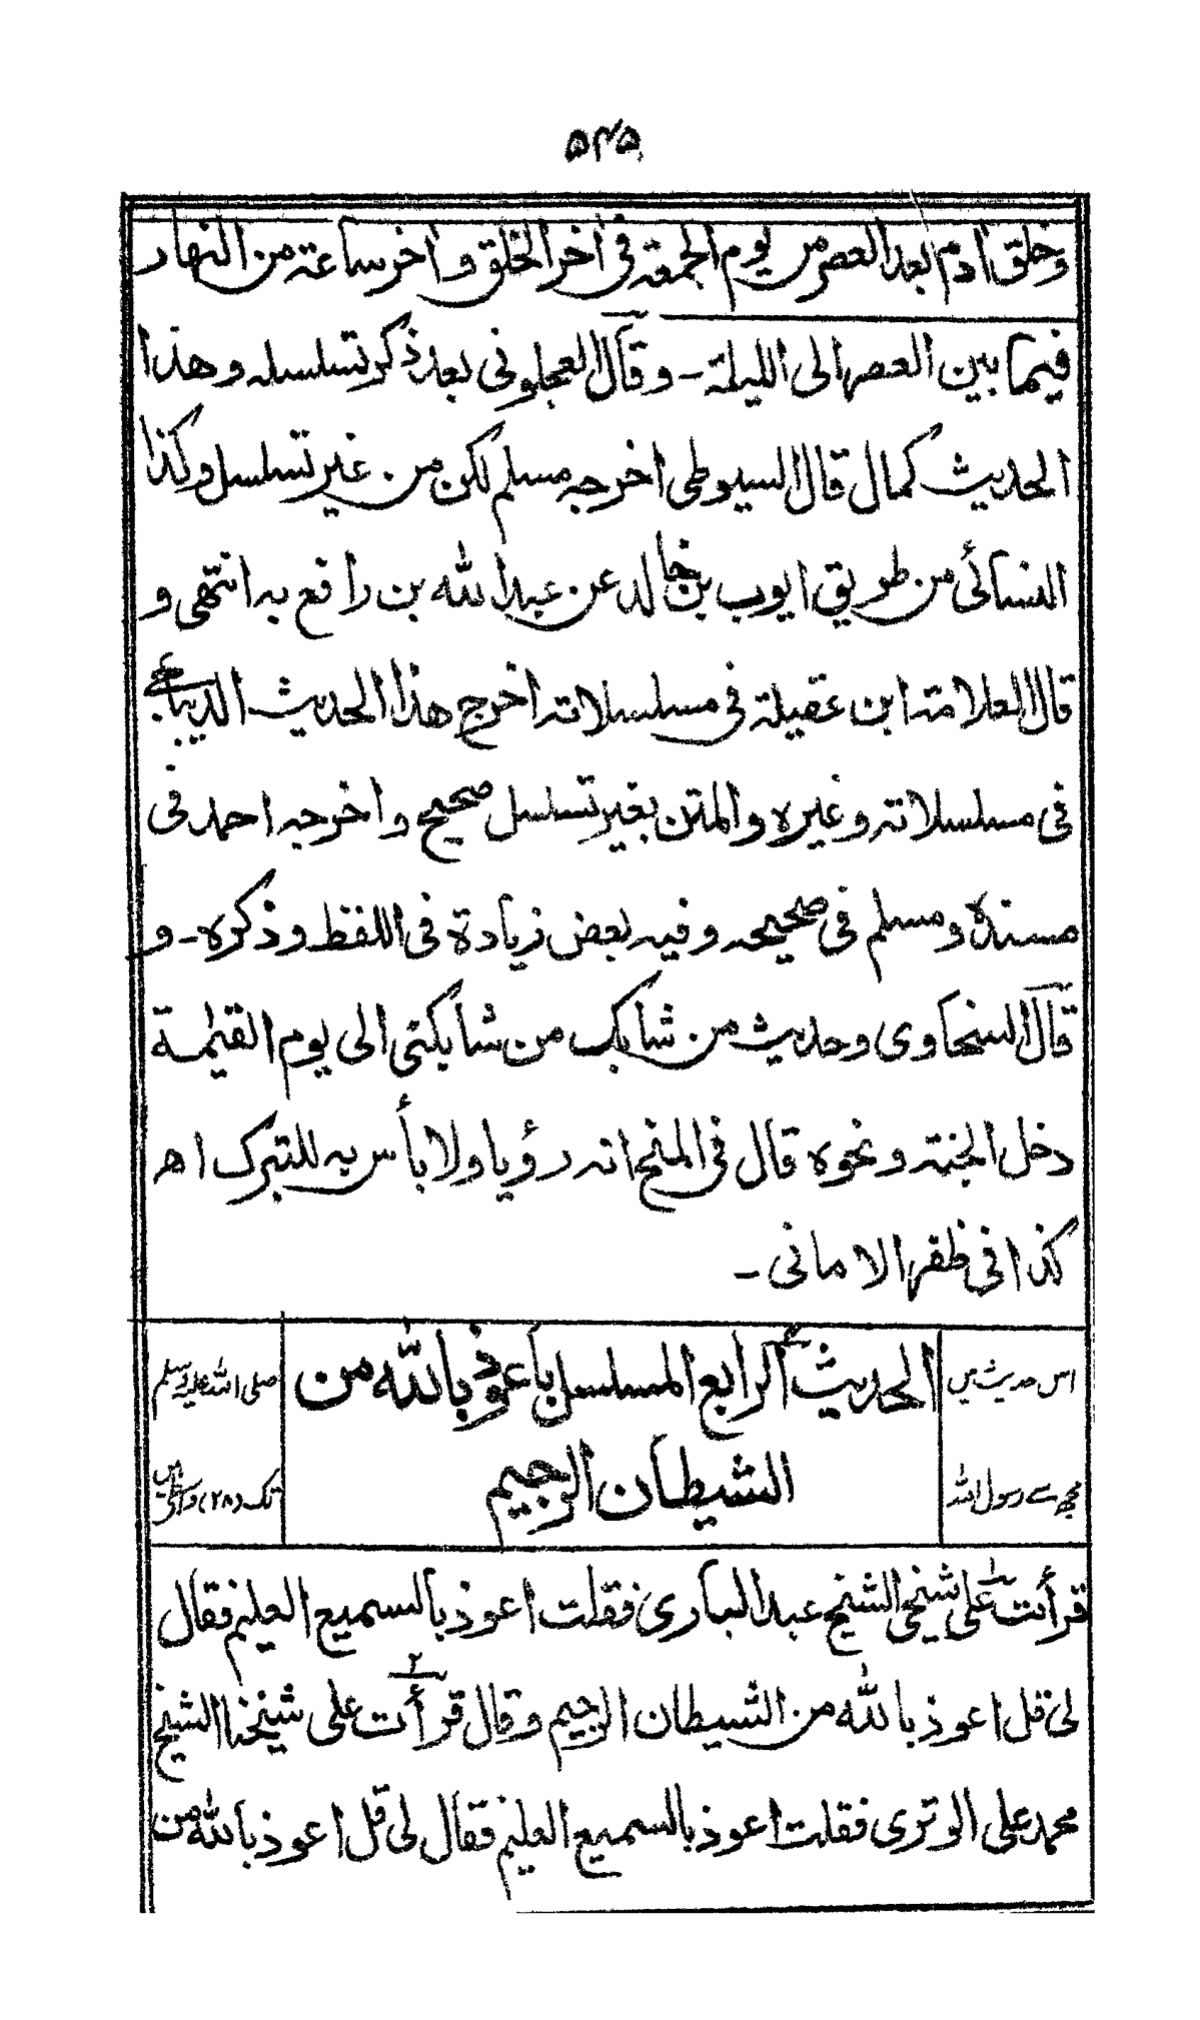 ۵۴۵
وخلق ادم بعد العصر من يوم الجمعة فى اخر الخلق و اخر ساعة من النهار
فيما بين العصر الى الليلة ـ و قال العجلونى بعد ذكر تسلسله و هذا
الحديث كمال قال السيوطى اخرجه مسلم لكن من غير تسلسل و كذا
النسائى من طريق ايوب بن خالد عن عبد الله بن رافع به انتهى و
قال العلامة ابن عقيلة فى مسلسلاته اخرج هذا الحديث الديباجى
فى مسلسلاته و غيره والمتن بغير تسلسل صحيح و اخرجه احمد فى
مسنده و مسلم فى صحيحه و فيه بعض زيادة فى اللفظ و ذكره ـ و
قال السخاوى و حديث من شابك من شابكنى الى يوم القيٰمة
دخل الجنة و نحوه قال فى المنح انه رؤيا ولا بأس به للتبرك اھ
كذا فى ظفر الامانى ـ
اس حدیث میں
الحديث الرابع المسلسل باعوذ بالله من
صلی اللہ علیہ وسلم
مجھ سے رسول اللہ
الشيطان الرجيم
تک (۲۸) واسطے ہیں
قرأت على شيخى الشيخ عبد البارى فقلت اعوذ بالسميع العليم فقال
لى قل اعوذ بالله من الشيطان الرجيم و قال قرأت ٢ على شيخنا الشيخ
محمد على الوترى فقلت اعوذ بالسميع العليم فقال لى قل اعوذ بالله من